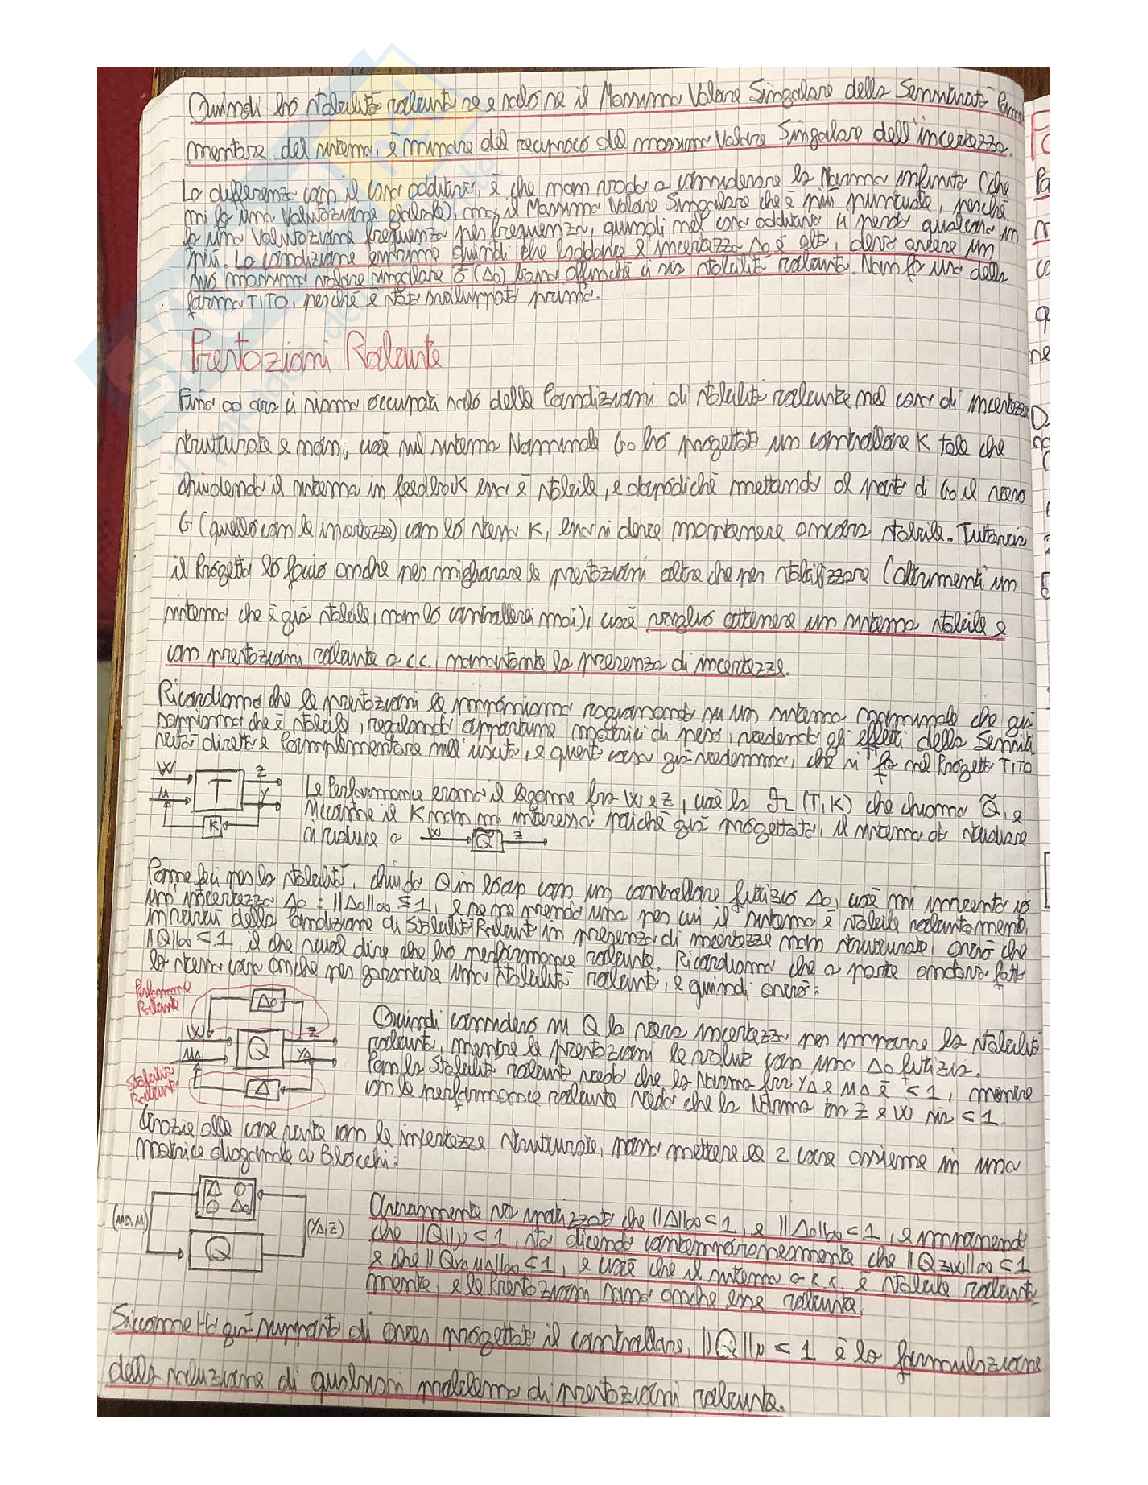 Quindi ho stabilità robusta se e solo se il Massimo Valore Singolare della Sensitività Comple
mentare del sistema, è minore del reciproco del massimo Valore Singolare dell'incertezza.
La differenza con il caso additivo, è che non vado a considerare la Norma infinito (che
mi fa una valutazione globale), ma il Massimo Valore Singolare che è più puntuale, perché
fa una Valutazione frequenza per frequenza, quindi nel caso additivo si perde qualcosa in
più. La condizione esprime quindi che laddove l'incertezza Δo è alta, devo avere un
mio massimo valore singolare σ̄ (Δo) basso affinché ci sia stabilità robusta. Non fo uso della
forma TITO, perché è stata sviluppata prima.
Prestazioni Robuste
Fino ad ora ci siamo occupati solo delle Condizioni di stabilità robuste nel caso di incertezze
strutturate e non, cioè nel sistema Nominale Go ho progettato un controllore K tale che
chiudendo il sistema in feedback esso è stabile, e dopodiché mettendo al posto di Go il vero
G (quello con le incertezze) con lo stesso K, esso si deve mantenere ancora stabile. Tuttavia
il Progetto lo faccio anche per migliorare le prestazioni oltre che per stabilizzare (altrimenti un
sistema che è già stabile, non lo controllerei mai), cioè voglio ottenere un sistema stabile e
con prestazioni robuste a c.c. nonostante la presenza di incertezze.
Ricordiamo che le prestazioni le ragionando su un sistema nominale che già
sappiamo che è stabile, regolando opportune matrici di peso, vedendo gli effetti della Sensiti
vità diretta e Complementare nell'uscita, e queste cose già vedemmo, che si fa nel Progetto TITO
W T Z
K
Le Performance erano il legame fra W e Z, cioè la (T,K) che chiamo Q̃, e
siccome il K non mi interessa poiché già progettato, il sistema da studiare
si riduce a W Q̃ Z
Come fu per la stabilità, chiudo Q in loop con un controllore fittizio Δo, cioè mi invento io
un'incertezza Δo : ||Δo||∞ ≤ 1, e ne prendo una per cui il sistema è stabile robustamente,
della Condizione di Stabilità Robusta in presenza di incertezze non strutturate, avrò che
||Q||∞ < 1, il che vuol dire che ho performance robuste. Ricordiamo che a parte
lo stesso caso anche per garantire una stabilità robusta, e quindi avrò:
Performance
Robuste
Δo
W Z
uΔ Q yΔ
Stabilità
Robusta
Δ
Quindi considero su Q la vera incertezza per imporre la stabilità
robusta, mentre le prestazioni le valuto con una Δo fittizia.
Con la Stabilità robusta vedo che la Norma fra YΔ e uΔ è < 1, mentre
con le performance robuste vedo che la Norma in Z e W sia < 1
Grazie alle cose fatte con le incertezze strutturate, posso mettere le 2 cose assieme in una
matrice diagonale a Blocchi:
Δ O
O Δo
(YΔ,Z)
Q
Ovviamente va ipotizzato che ||Δ||∞ < 1, e ||Δo||∞ < 1, e imponendo
che ||Q||μ < 1, sto dicendo contemporaneamente che ||Qzw||∞ ≤ 1
e che ||Qyu||∞ ≤ 1, e cioè che il sistema a c.c. è stabile robusta
mente, e le Prestazioni sono anche esse robuste.
Siccome Ho già supposto di aver progettato il controllore, ||Q||μ < 1 è la formulazione
della soluzione di qualsiasi problema di prestazioni robuste.